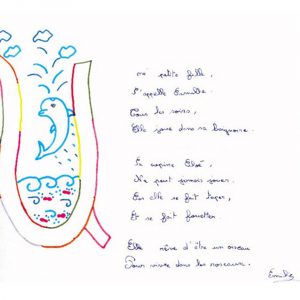 petite fille,
S'appelle Camille.
Tous les soirs,
Elle joue dans sa baignoire.
Sa copine Cloé,
Ne peut jamais jouer.
Car elle se fait taper,
Et se fait fouetter.
Elle rêve d'être un oiseau
Pour vivre dans les roseaux.
Emilie